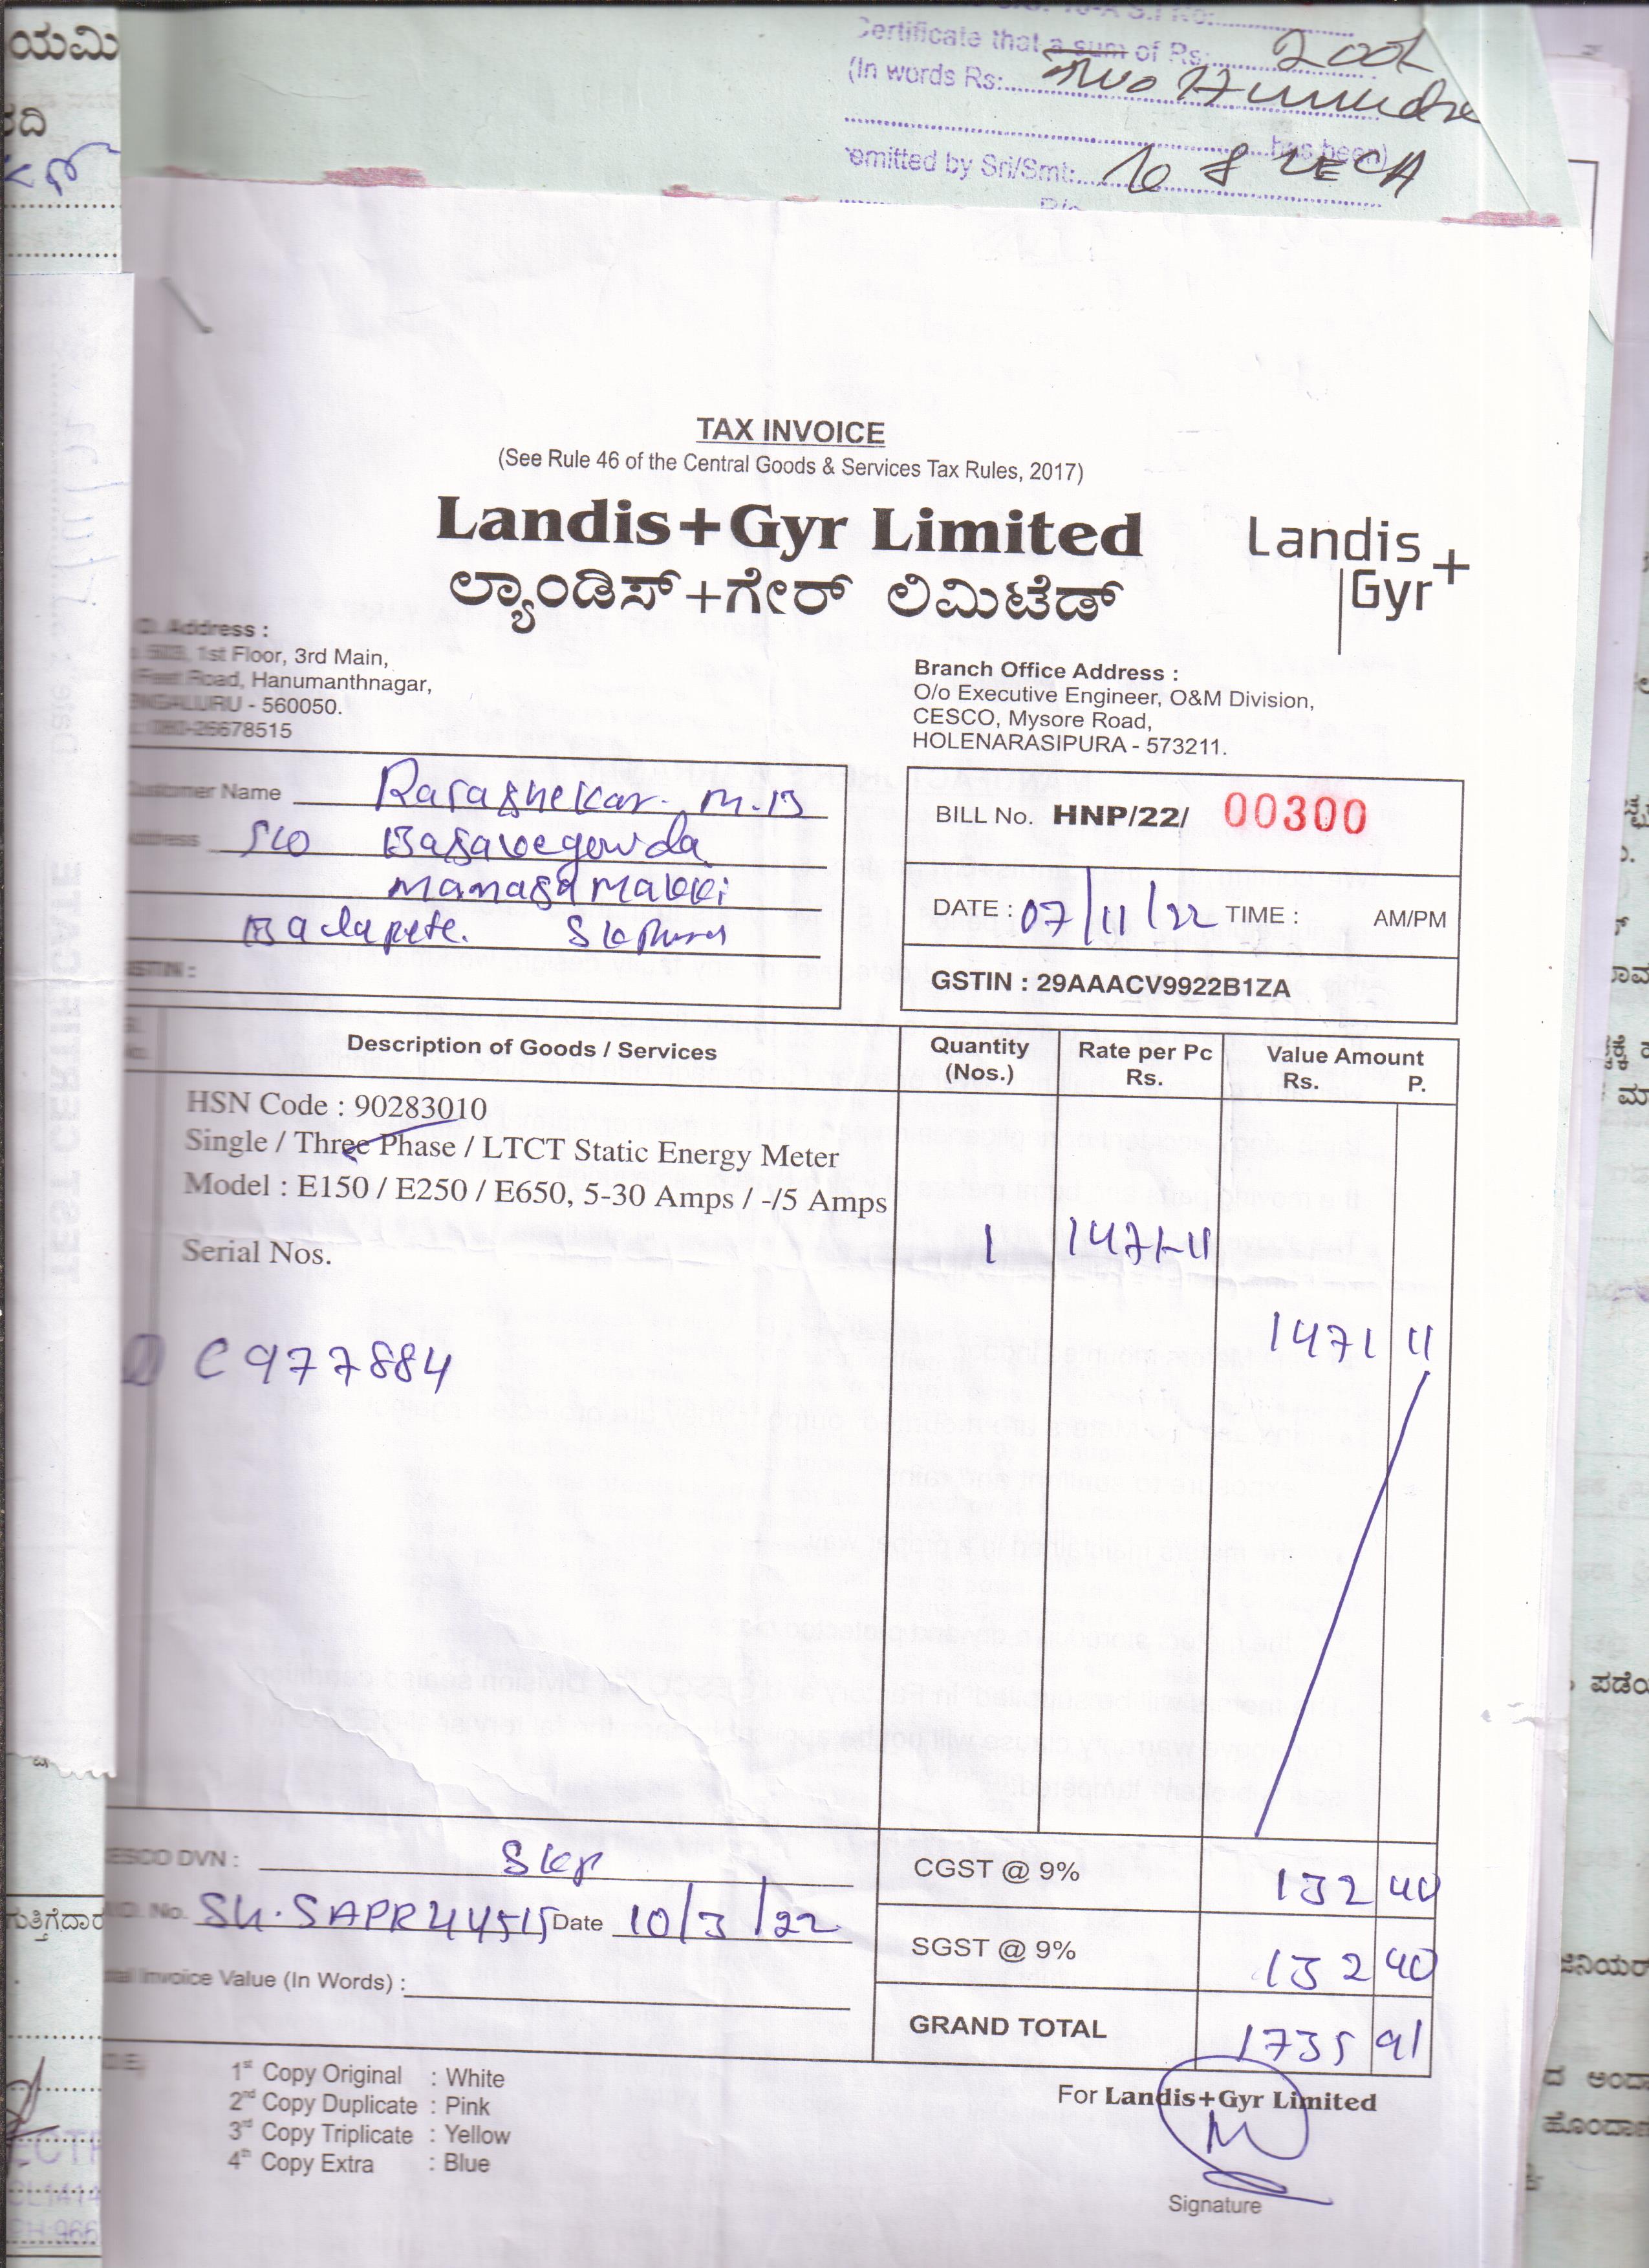 ಯಮಿ
Certificate that a sum of Rs:
(In words Rs: Two
has been)
emitted by Sri/Smt:
TAX INVOICE
(See Rule 46 of the Central Goods & Services Tax Rules, 2017)
Landis+Gyr Limited
ಲ್ಯಾಂಡಿಸ್+ಗೇರ್ ಲಿಮಿಟೆಡ್
Landis+
Gyr
Address :
1st Floor, 3rd Main,
Feet Road, Hanumanthnagar,
BENGALURU - 560050.
080-26678515
Branch Office Address :
O/o Executive Engineer, O&M Division,
CESCO, Mysore Road,
HOLENARASIPURA - 573211.
Customer Name Rarashekar. M.B
Address S/O Basavegowda
Managamakki
Baclapete. Skpura
GSTIN :
BILL No. HNP/22/ 00300
DATE : 07/11/22 TIME : AM/PM
GSTIN : 29AAACV9922B1ZA
Description of Goods / Services Quantity (Nos.) Rate per Pc Rs. Value Amount Rs. P.
HSN Code : 90283010
Single / Three Phase / LTCT Static Energy Meter
Model : E150 / E250 / E650, 5-30 Amps / -/5 Amps
1 1471-11
Serial Nos.
1471 11
C977884
CESCO DVN : Skp
CGST @ 9% 132 40
No. Sk.SAPR44515 Date 10/3/22
SGST @ 9% 132 40
Total Invoice Value (In Words) :
GRAND TOTAL 1735 91
1st Copy Original : White
2nd Copy Duplicate : Pink
3rd Copy Triplicate : Yellow
4th Copy Extra : Blue
For Landis+Gyr Limited
Signature